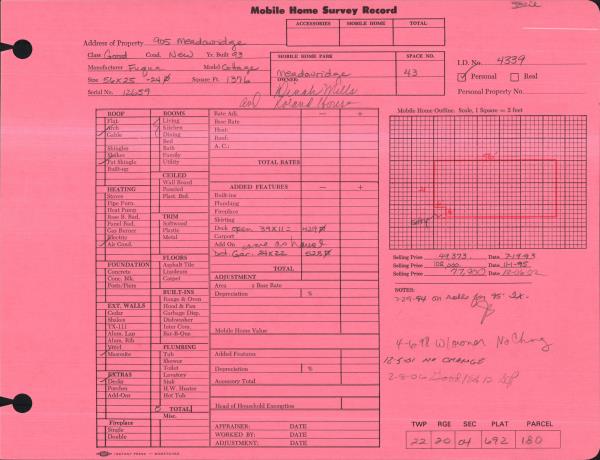 Mobile Home Survey Record
ACCESSORIES MOBILE HOME TOTAL
Address of Property 905 Meadowridge
Class Good Cond. New Yr. Built 93
Manufacturer Fuqua Model Cottage
Size 56X25 -24
Square Ft. 1376
Serial No. 12659
MOBILE HOME PARK
Meadowridge
SPACE NO.
43
OWNER:
Dinah Mills
and Roland House
I.D. No. 4339
Personal Real
Personal Property No.
ROOF
Flat
Arch
Gable
Shingles
Shakes
Fat Shingle
Built-up
HEATING
Stoves
Pipe Furn.
Heat Pump
Base B. Rad.
Panel Rad.
Gas Burner
Electric
Air Cond.
FOUNDATION
Concrete
Conc. Blk.
Posts/Piers
EXT. WALLS
Cedar
Shakes
TX-111
Alum. Lap
Alum. Rib
Vinyl
Masonite
EXTRAS
Decks
Porches
Add-Ons
Fireplace
Single
Double
ROOMS
Living
Kitchen
Dining
Bed
Bath
Family
Utility
CEILED
Wall Board
Paneled
Plast. Brd.
TRIM
Softwood
Plastic
Metal
FLOORS
Asphalt Tile
Linoleum
Carpet
BUILT-INS
Range & Oven
Hood & Fan
Garbage Disp.
Dishwasher
Inter Com.
Bar-B-Que
PLUMBING
Tub
Shower
Toilet
Lavatory
Sink
H.W. Heater
Hot Tub
TOTAL
Misc.
Rate Adj. — +
Base Rate
Heat:
Roof:
A. C.:
TOTAL RATES
ADDED FEATURES — +
Built-ins
Plumbing
Fireplace
Skirting
Deck open 39X11 = 429
Carport
Add On same as house
Det. Gar. 24X22 528
TOTAL
ADJUSTMENT
Area x Base Rate
Depreciation %
Mobile Home Value
Added Features
Depreciation %
Accessory Total
Head of Household Exemption
APPRAISER: DATE
WORKED BY: DATE
ADJUSTMENT: DATE
Mobile Home Outline. Scale, 1 Square = 2 feet
Selling Price 49,373. Date 7-19-93
Selling Price 102,000 Date 11-1-95
Selling Price 77,900 Date 12-06-02
NOTES:
7-29-94 on rolls for 95 Tx.
4-6-98 W/owner No Chang
12-5-01 NO CHANGE
TWP RGE SEC PLAT PARCEL
22 20 04 692 180
INSTANT PRESS — MONTESANO